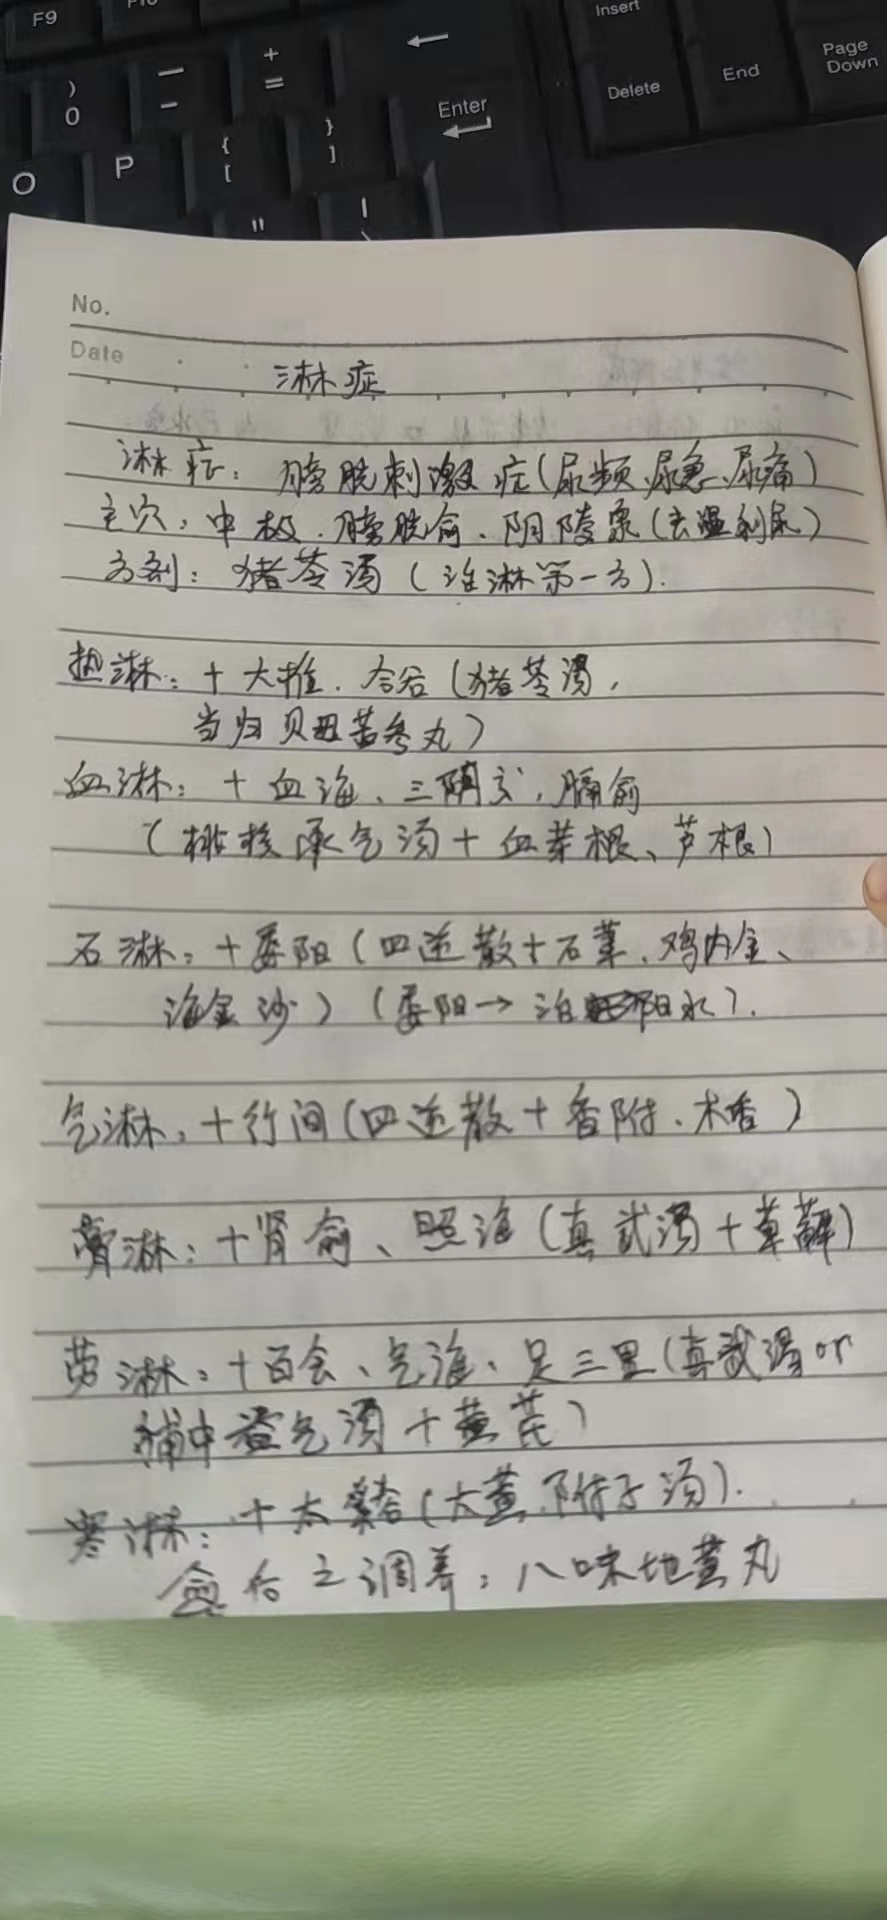 F9
Insert
Delete
End
Page Down
) 0
— -
+ =
Enter
O
P
{ [
} ]
"
No.
Date
淋症
淋症：膀胱刺激症（尿频、尿急、尿痛）
主穴：中极、膀胱俞、阴陵泉（去湿利尿）
方剂：猪苓汤（治淋第一方）.
热淋：+大椎、合谷（猪苓汤，
当归贝母苦参丸）
血淋：+血海、三阴交、膈俞
（桃核承气汤+血芽根、芦根）
石淋：+委阳（四逆散+石苇、鸡内金、
海金沙）（委阳→治阳水）.
气淋：+行间（四逆散+香附、木香）
膏淋：+肾俞、照海（真武汤+草薢）
劳淋：+百会、气海、足三里（真武汤or
补中益气汤+黄芪）
寒淋：+太溪（大黄附子汤）.
愈后之调养：八味地黄丸